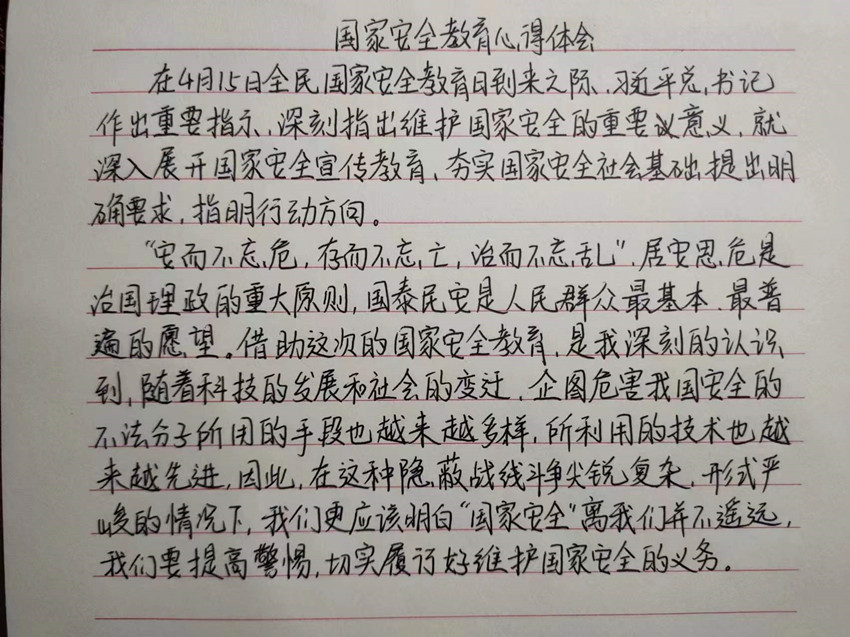 国家安全教育心得体会
在4月15日全民国家安全教育日到来之际、习近平总书记
作出重要指示，深刻指出维护国家安全的重要议意义，就
深入展开国家安全宣传教育、夯实国家安全社会基础提出明
确要求，指明行动方向。
“安而不忘危，存而不忘亡，治而不忘乱”，居安思危是
治国理政的重大原则，国泰民安是人民群众最基本、最普
遍的愿望。借助这次的国家安全教育，是我深刻的认识
到，随着科技的发展和社会的变迁，企图危害我国安全的
不法分子所用的手段也越来越多样，所利用的技术也越
来越先进，因此，在这种隐蔽战线斗争尖锐复杂，形式严
峻的情况下，我们更应该明白“国家安全”离我们并不遥远，
我们要提高警惕，切实履行好维护国家安全的义务。